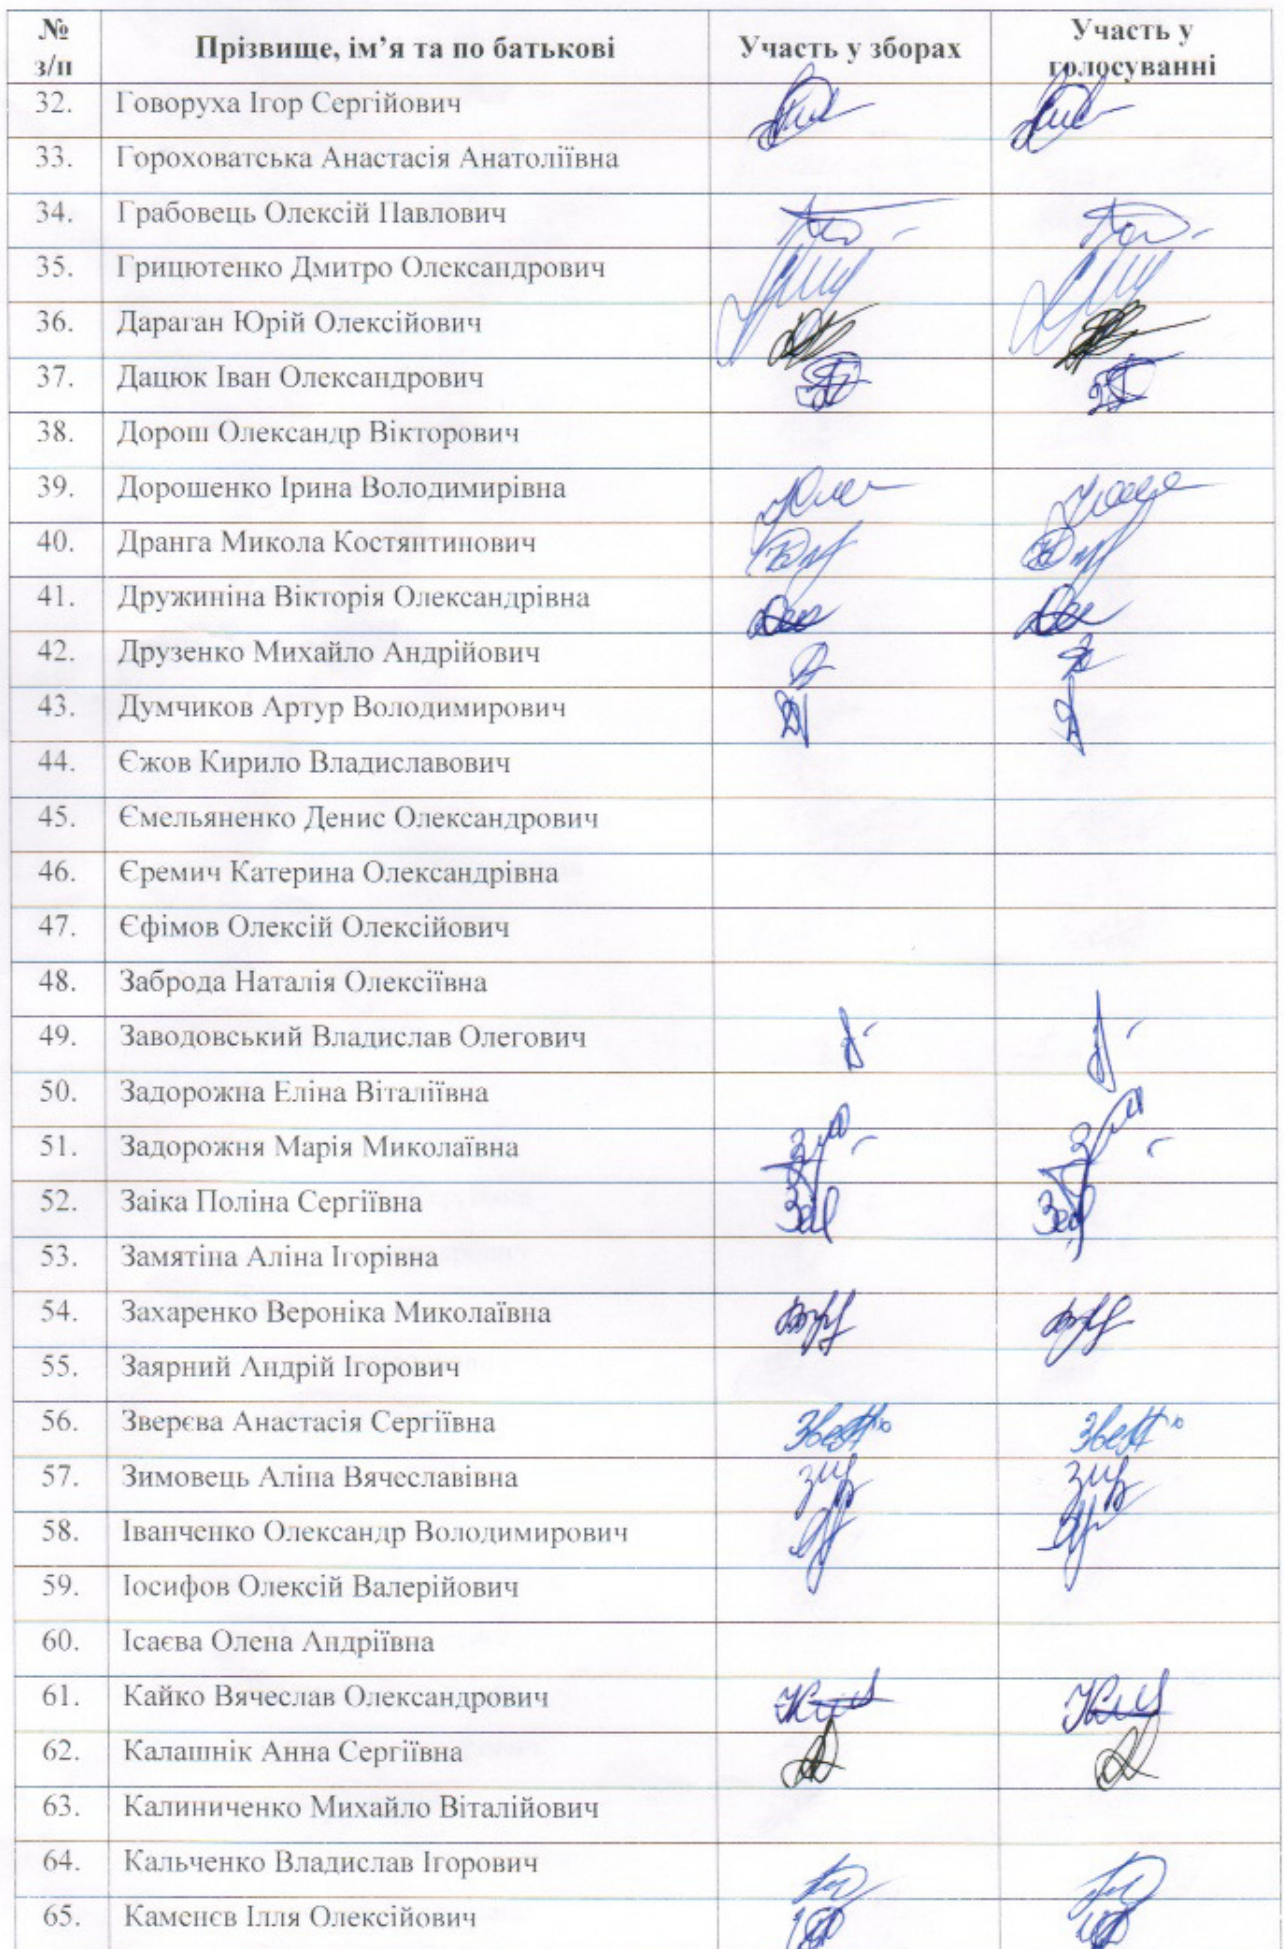 № з/п Прізвище, ім’я та по батькові Участь у зборах Участь у голосуванні
32. Говоруха Ігор Сергійович
33. Гороховатська Анастасія Анатоліївна
34. Грабовець Олексій Павлович
35. Грицютенко Дмитро Олександрович
36. Дараган Юрій Олексійович
37. Дацюк Іван Олександрович
38. Дорош Олександр Вікторович
39. Дорошенко Ірина Володимирівна
40. Дранга Микола Костянтинович
41. Дружиніна Вікторія Олександрівна
42. Друзенко Михайло Андрійович
43. Думчиков Артур Володимирович
44. Єжов Кирило Владиславович
45. Ємельяненко Денис Олександрович
46. Єремич Катерина Олександрівна
47. Єфімов Олексій Олексійович
48. Заброда Наталія Олексіївна
49. Заводовський Владислав Олегович
50. Задорожна Еліна Віталіївна
51. Задорожня Марія Миколаївна
52. Заіка Поліна Сергіївна
53. Замятіна Аліна Ігорівна
54. Захаренко Вероніка Миколаївна
55. Заярний Андрій Ігорович
56. Зверєва Анастасія Сергіївна
57. Зимовець Аліна Вячеславівна
58. Іванченко Олександр Володимирович
59. Іосифов Олексій Валерійович
60. Ісаєва Олена Андріївна
61. Кайко Вячеслав Олександрович
62. Калашнік Анна Сергіївна
63. Калиниченко Михайло Віталійович
64. Кальченко Владислав Ігорович
65. Каменєв Ілля Олексійович